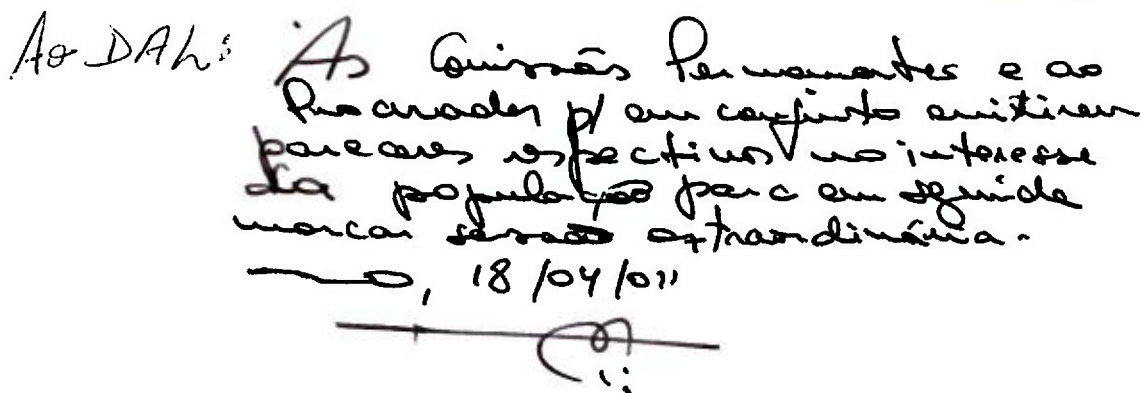 Ao DAL: Às Comissões Permanentes e ao
Procurador p/ em conjunto emitirem
pareceres respectivos no interesse
da população para em seguida
marcar sessão extraordinária.
18/04/011